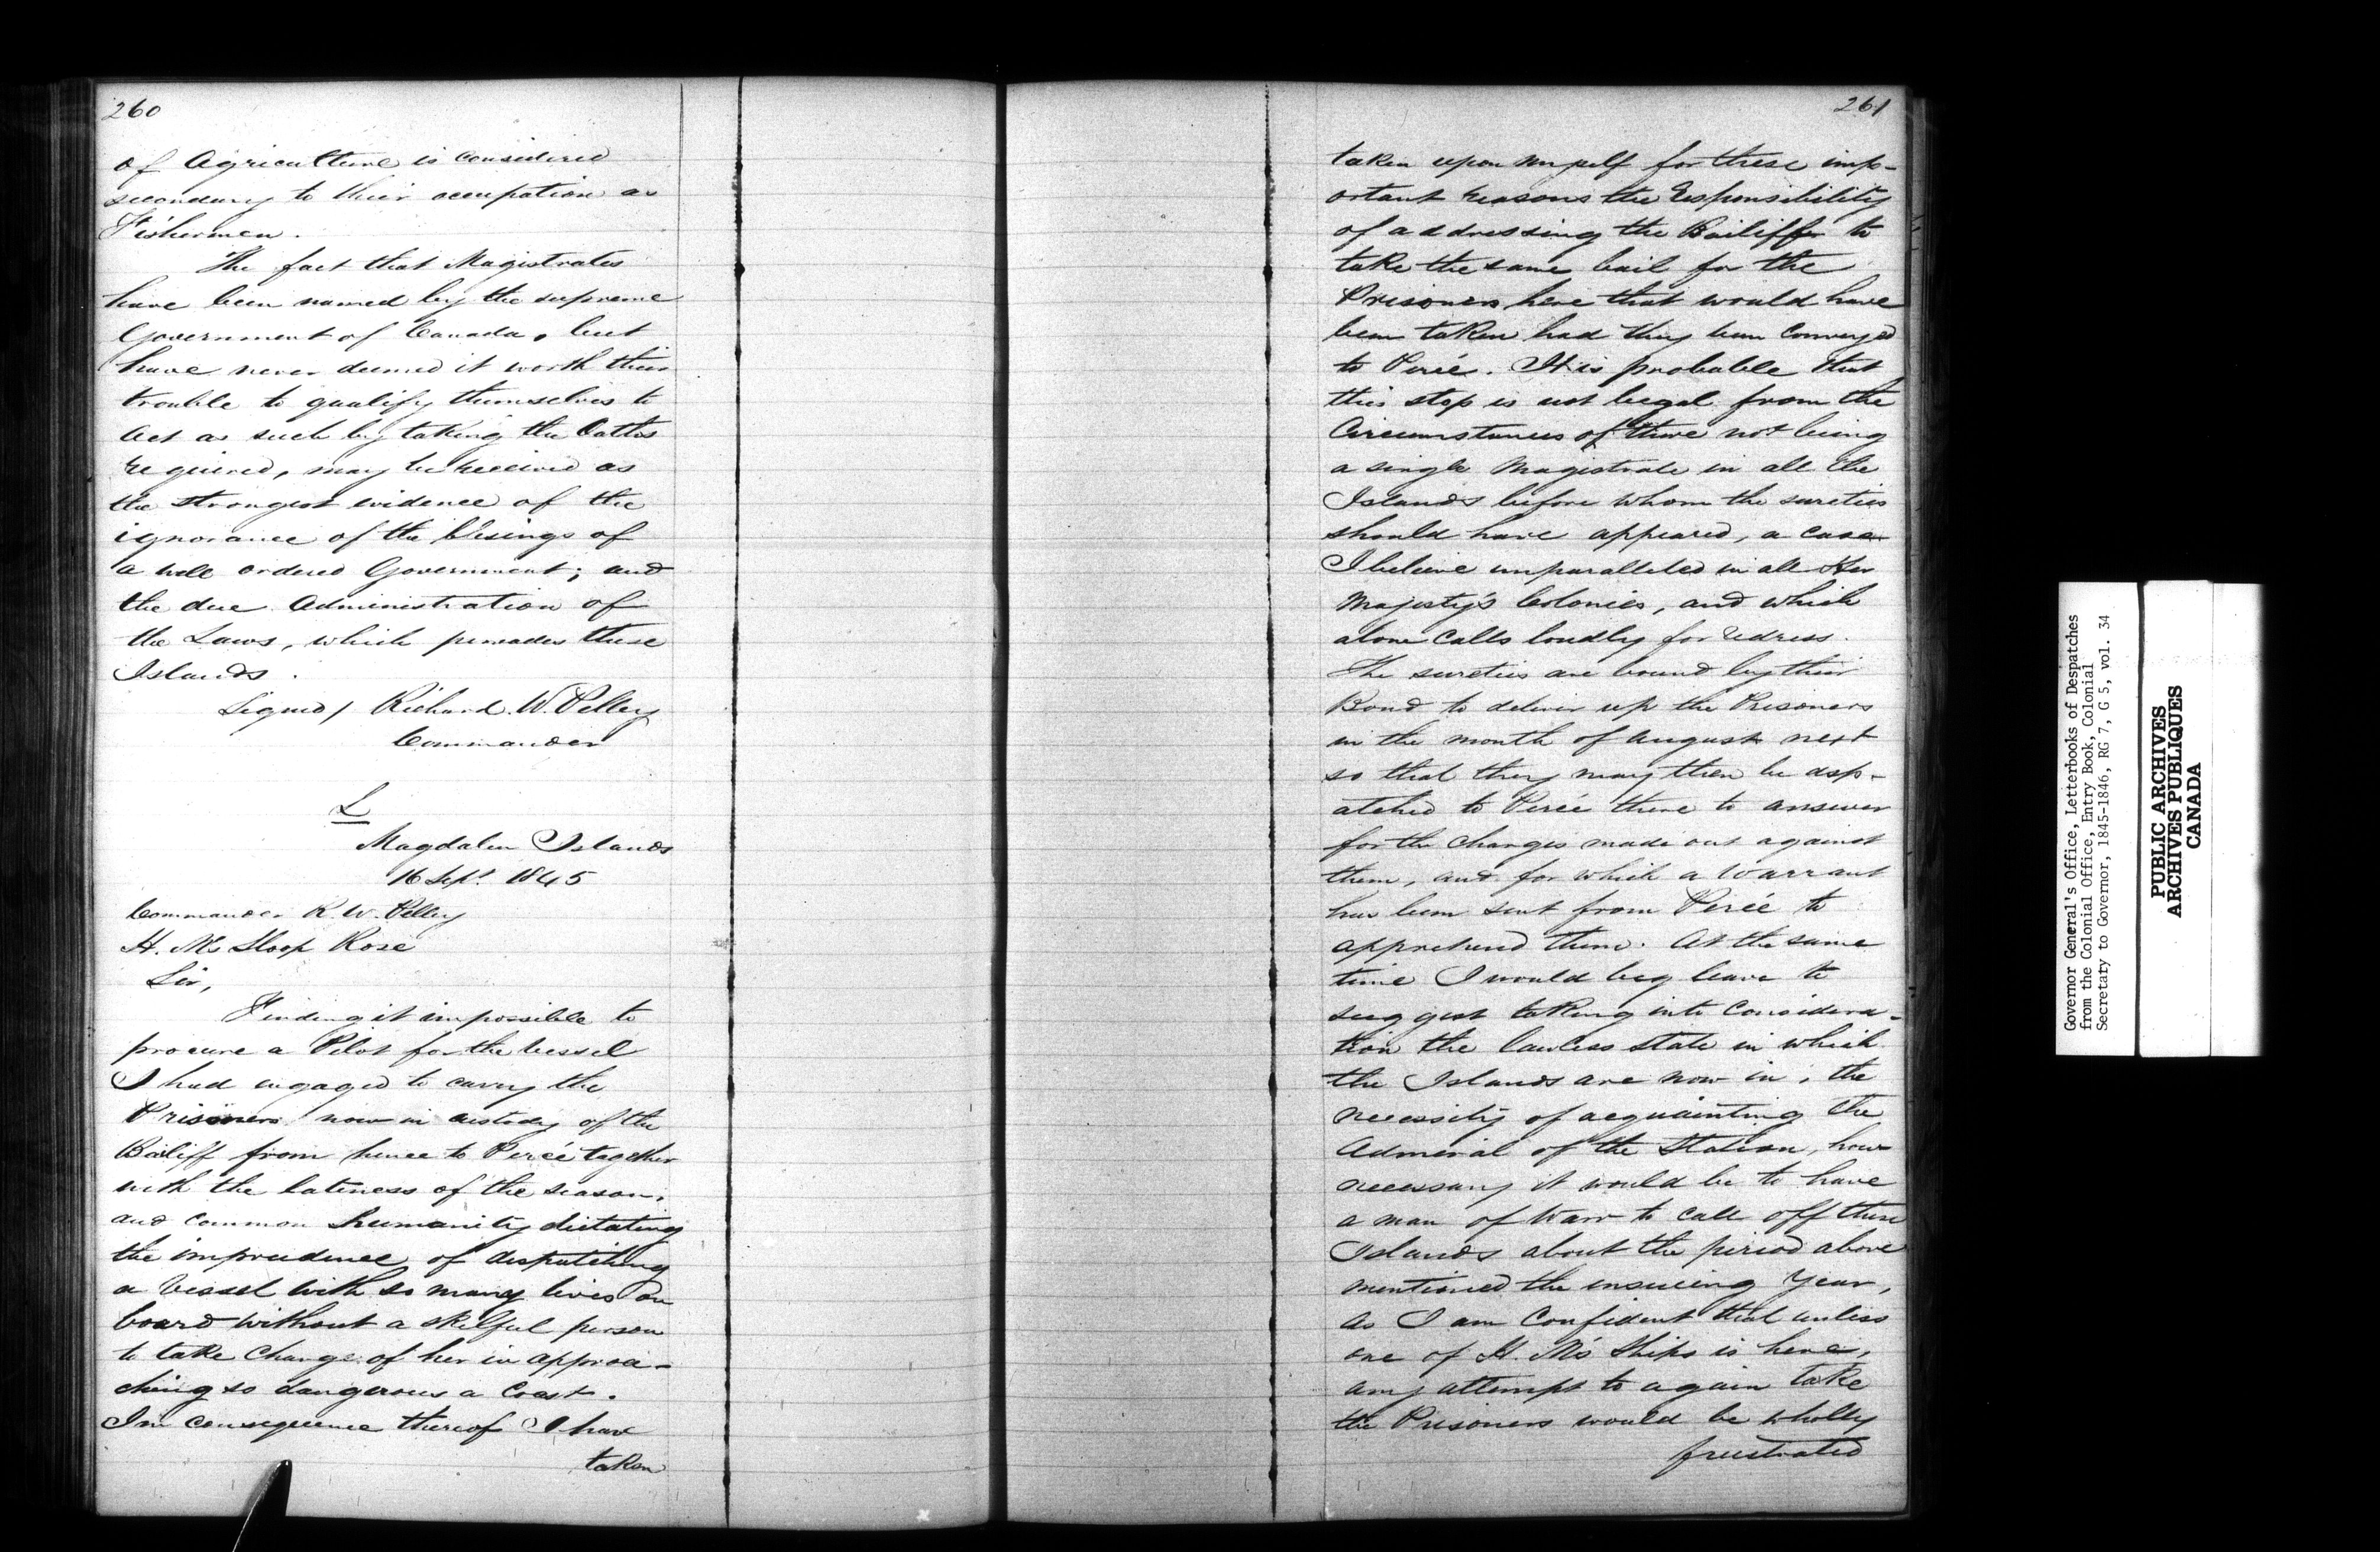 260
of Agriculture is considered
secondary to their occupation as
Fishermen.
The fact that Magistrates
have been named by the supreme
Government of Canada, but
have never deemed it worth their
trouble to qualify themselves to
act as such by taking the Oaths
required, may be received as
the strongest evidence of the
ignorance of the blesings of
a well ordered Government; and
the due Administration of
the Laws, which pervades these
Islands.
Signed / Richard. W. Pelley
Commander
L
Magdalen Islands
16 Sept. 1845
Commander R. W. Pelley
H. Ms Sloop Rose
Sir,
Finding it impossible to
procure a Pilot for the vessel
I had engaged to carry the
Prisoners now in custody of the
Bailiff from hence to Percé together
with the lateness of the season,
and common humanity dictating
the imprudence of dispatching
a vessel with so many lives on
board without a skilful person
to take charge of her in approa-
ching so dangerous a Coast.
In consequence thereof I have
taken
261
taken upon myself for these imp-
ortant reasons the responsibility
of addressing the Bailiff to
take the same bail for the
Prisoners here that would have
been taken had they been conveyed
to Percé. It is probable that
this step is not legal from the
Circumstances of there not being
a single Magistrate in all the
Islands before whom the sureties
should have appeared, a case
I believe unparalleled in all Her
Majesty's Colonies, and which
alone calls loudly for redress.
The sureties are bound by their
Bond to deliver up the Prisoners
in the month of August next
so that they may then be disp-
atched to Percé there to answer
for the charges made out against
them, and for which a Warrant
has been sent from Percé to
apprehend them. At the same
time I would beg leave to
suggest taking into Considera-
tion the lawless state in which
the Islands are now in, the
necessity of acquainting the
Admiral of the Station, how
necessary it would be to have
a man of Warr to call off these
Islands about the period above
mentioned the ensueing Year,
as I am Confident that unless
one of H. M's Ships is here,
any attempt to again take
the Prisoners would be wholly
frustrated
Governor General's Office, Letterbooks of Despatches
from the Colonial Office, Entry Book, Colonial
Secretary to Governor, 1845-1846, RG 7, G 5, vol. 34
PUBLIC ARCHIVES
ARCHIVES PUBLIQUES
CANADA